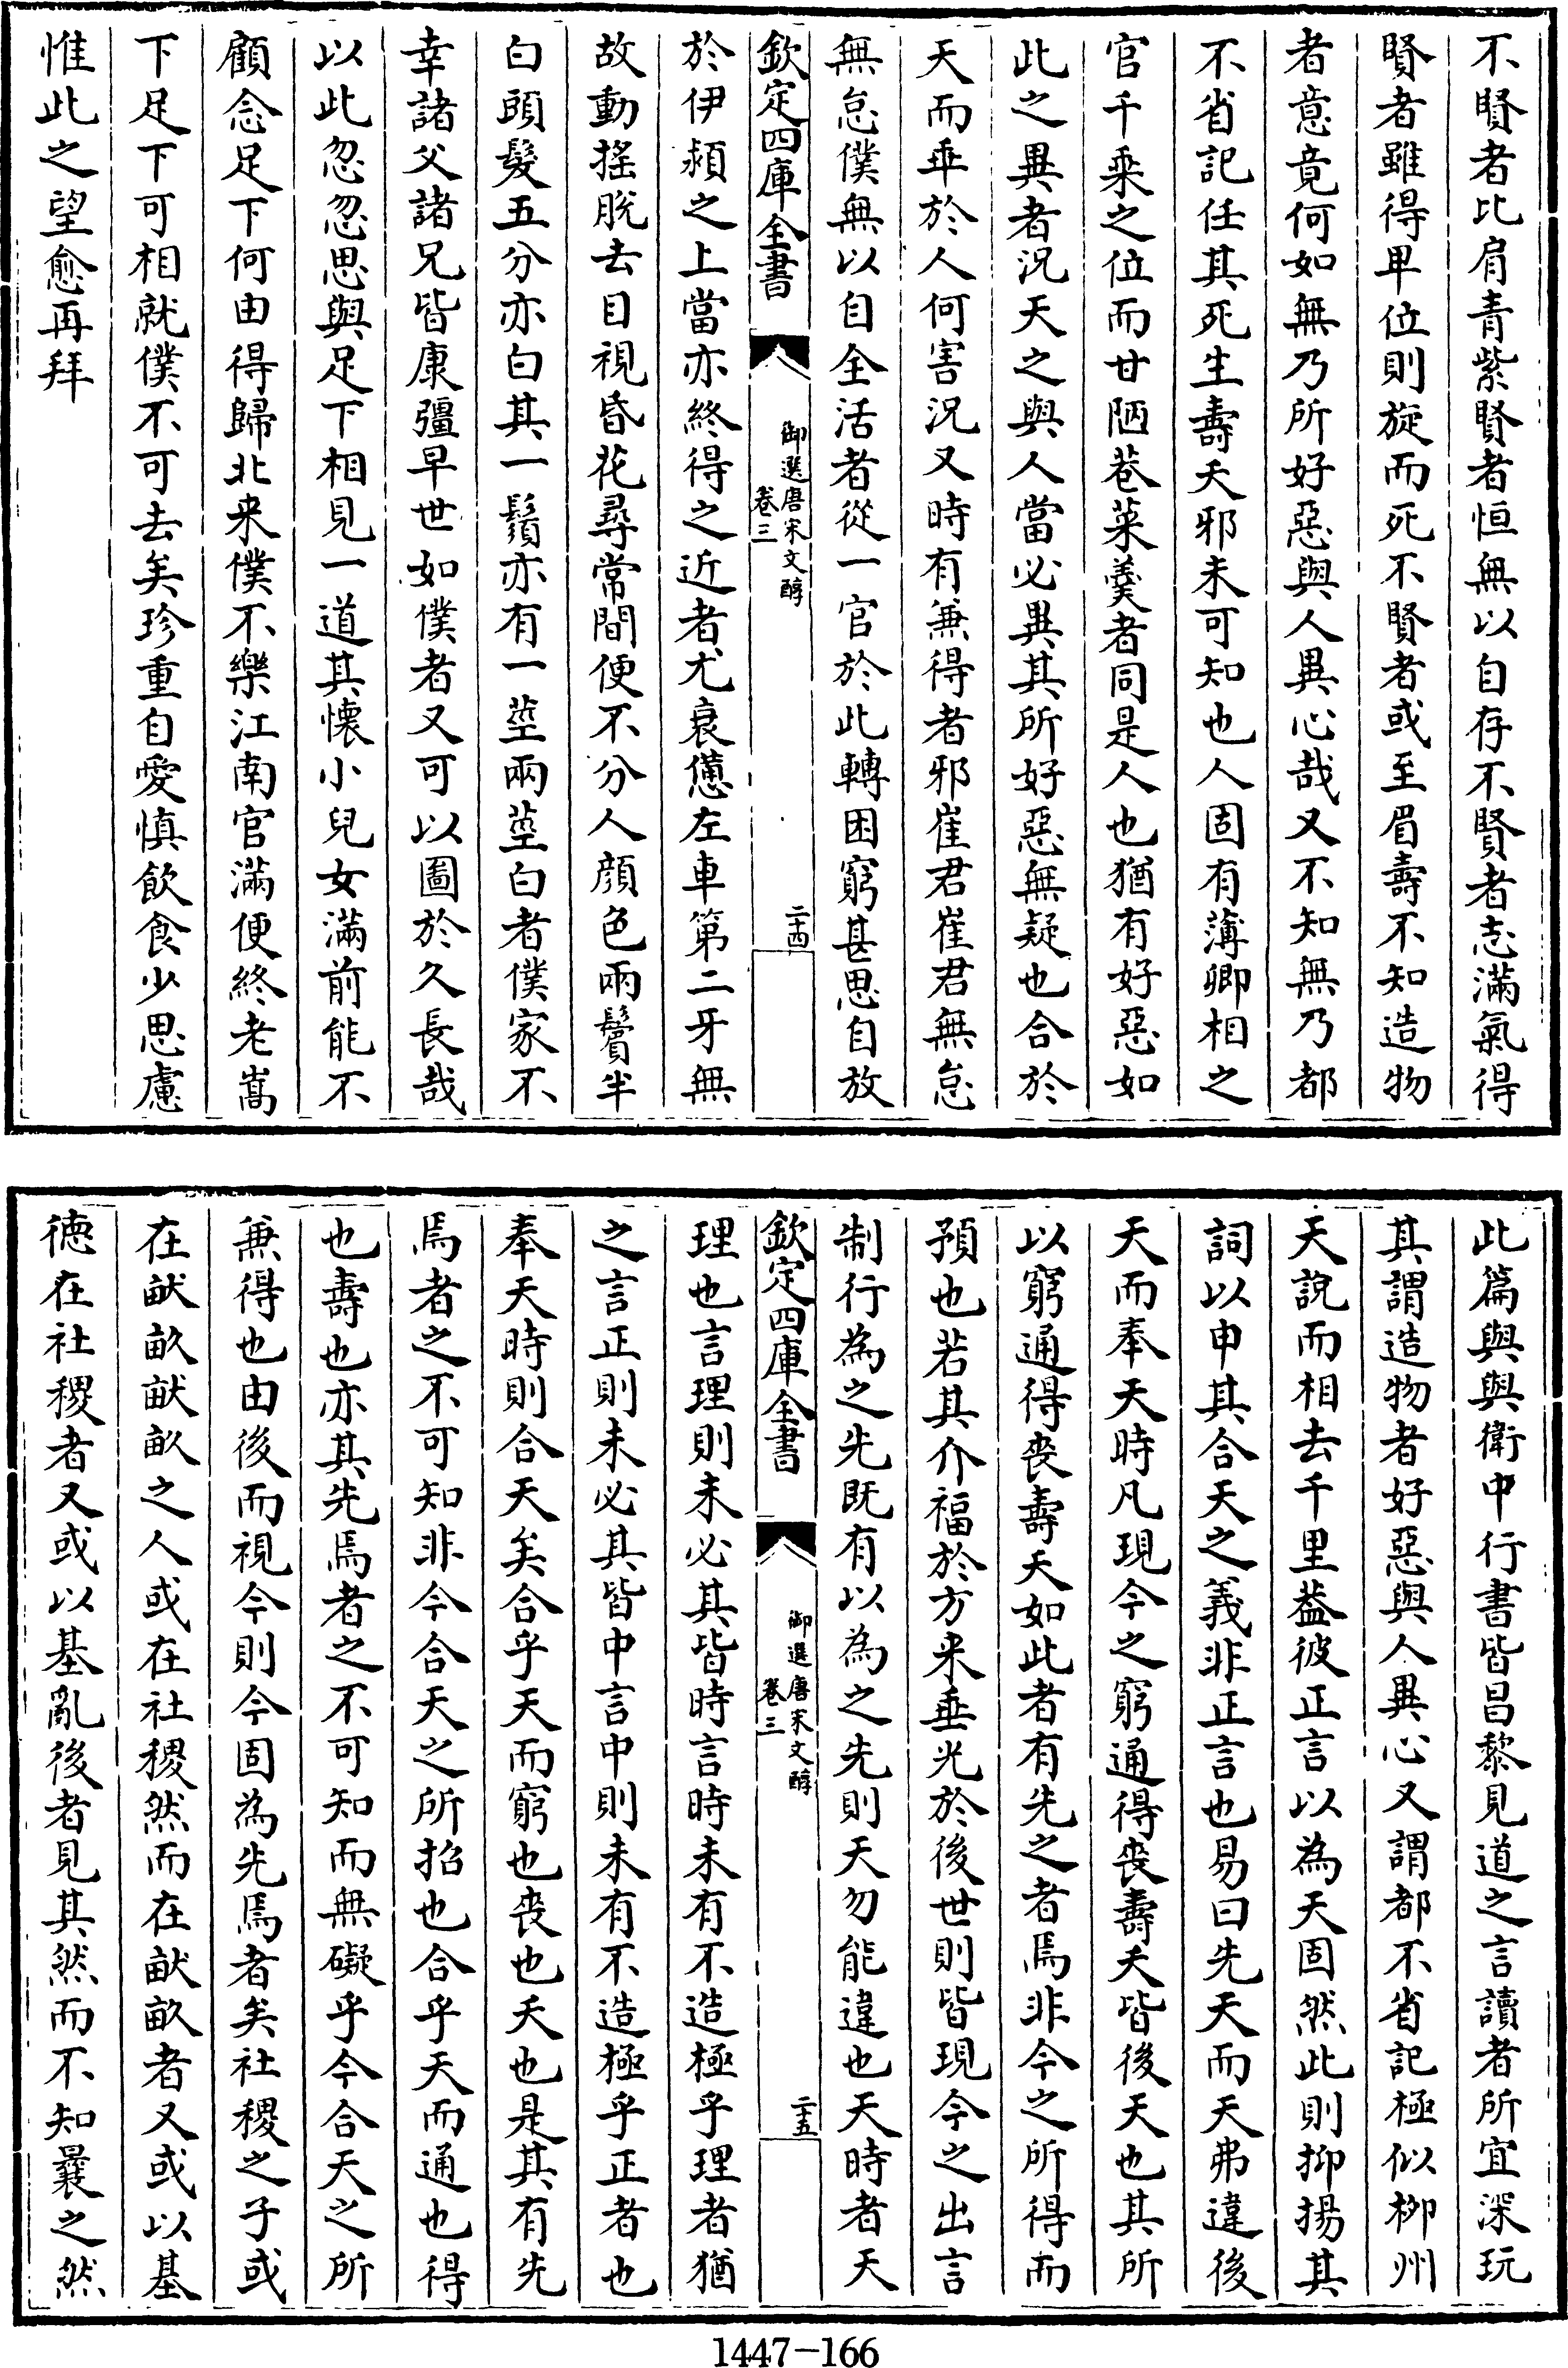 不賢者比肩青紫賢者恒無以自存不賢者志滿氣得
賢者雖得卑位則旋而死不賢者或至眉壽不知造物
者意竟何如無乃所好惡與人異心哉又不知無乃都
不省記任其死生壽夭邪未可知也人固有薄卿相之
官千乘之位而甘陋巷菜羹者同是人也猶有好惡如
此之異者況天之與人當必異其所好惡無疑也合於
天而乖於人何害況又時有兼得者邪崔君崔君無怠
無怠僕無以自全活者從一官於此轉困窮甚思自放
欽定四庫全書
御選唐宋文醇
卷三
二十四
於伊潁之上當亦終得之近者尤衰憊左車第二牙無
故動搖脫去目視昏花尋常間便不分人顔色兩鬢半
白頭髮五分亦白其一鬚亦有一莖兩莖白者僕家不
幸諸父諸兄皆康彊早世如僕者又可以圖於久長哉
以此忽忽思與足下相見一道其懷小兒女滿前能不
顧念足下何由得歸北来僕不樂江南官滿便終老嵩
下足下可相就僕不可去矣珍重自愛慎飲食少思慮
惟此之望愈再拜
此篇與與衛中行書皆昌黎見道之言讀者所宜深玩
其謂造物者好惡與人異心又謂都不省記極似柳州
天說而相去千里葢彼正言以為天固然此則抑揚其
詞以申其合天之義非正言也易曰先天而天弗違後
天而奉天時凡現今之窮通得喪壽夭皆後天也其所
以窮通得喪壽夭如此者有先之者焉非今之所得而
預也若其介福於方来垂光於後世則皆現今之出言
制行為之先既有以為之先則天勿能違也天時者天
欽定四庫全書
御選唐宋文醇
卷三
二十五
理也言理則未必其皆時言時未有不造極乎理者猶
之言正則未必其皆中言中則未有不造極乎正者也
奉天時則合天矣合乎天而窮也喪也夭也是其有先
焉者之不可知非今合天之所招也合乎天而通也得
也壽也亦其先焉者之不可知而無礙乎今合天之所
兼得也由後而視今則今固為先焉者矣社稷之子或
在畎畝畎畝之人或在社稷然而在畎畝者又或以基
德在社稷者又或以基亂後者見其然而不知曩之然
1447-166